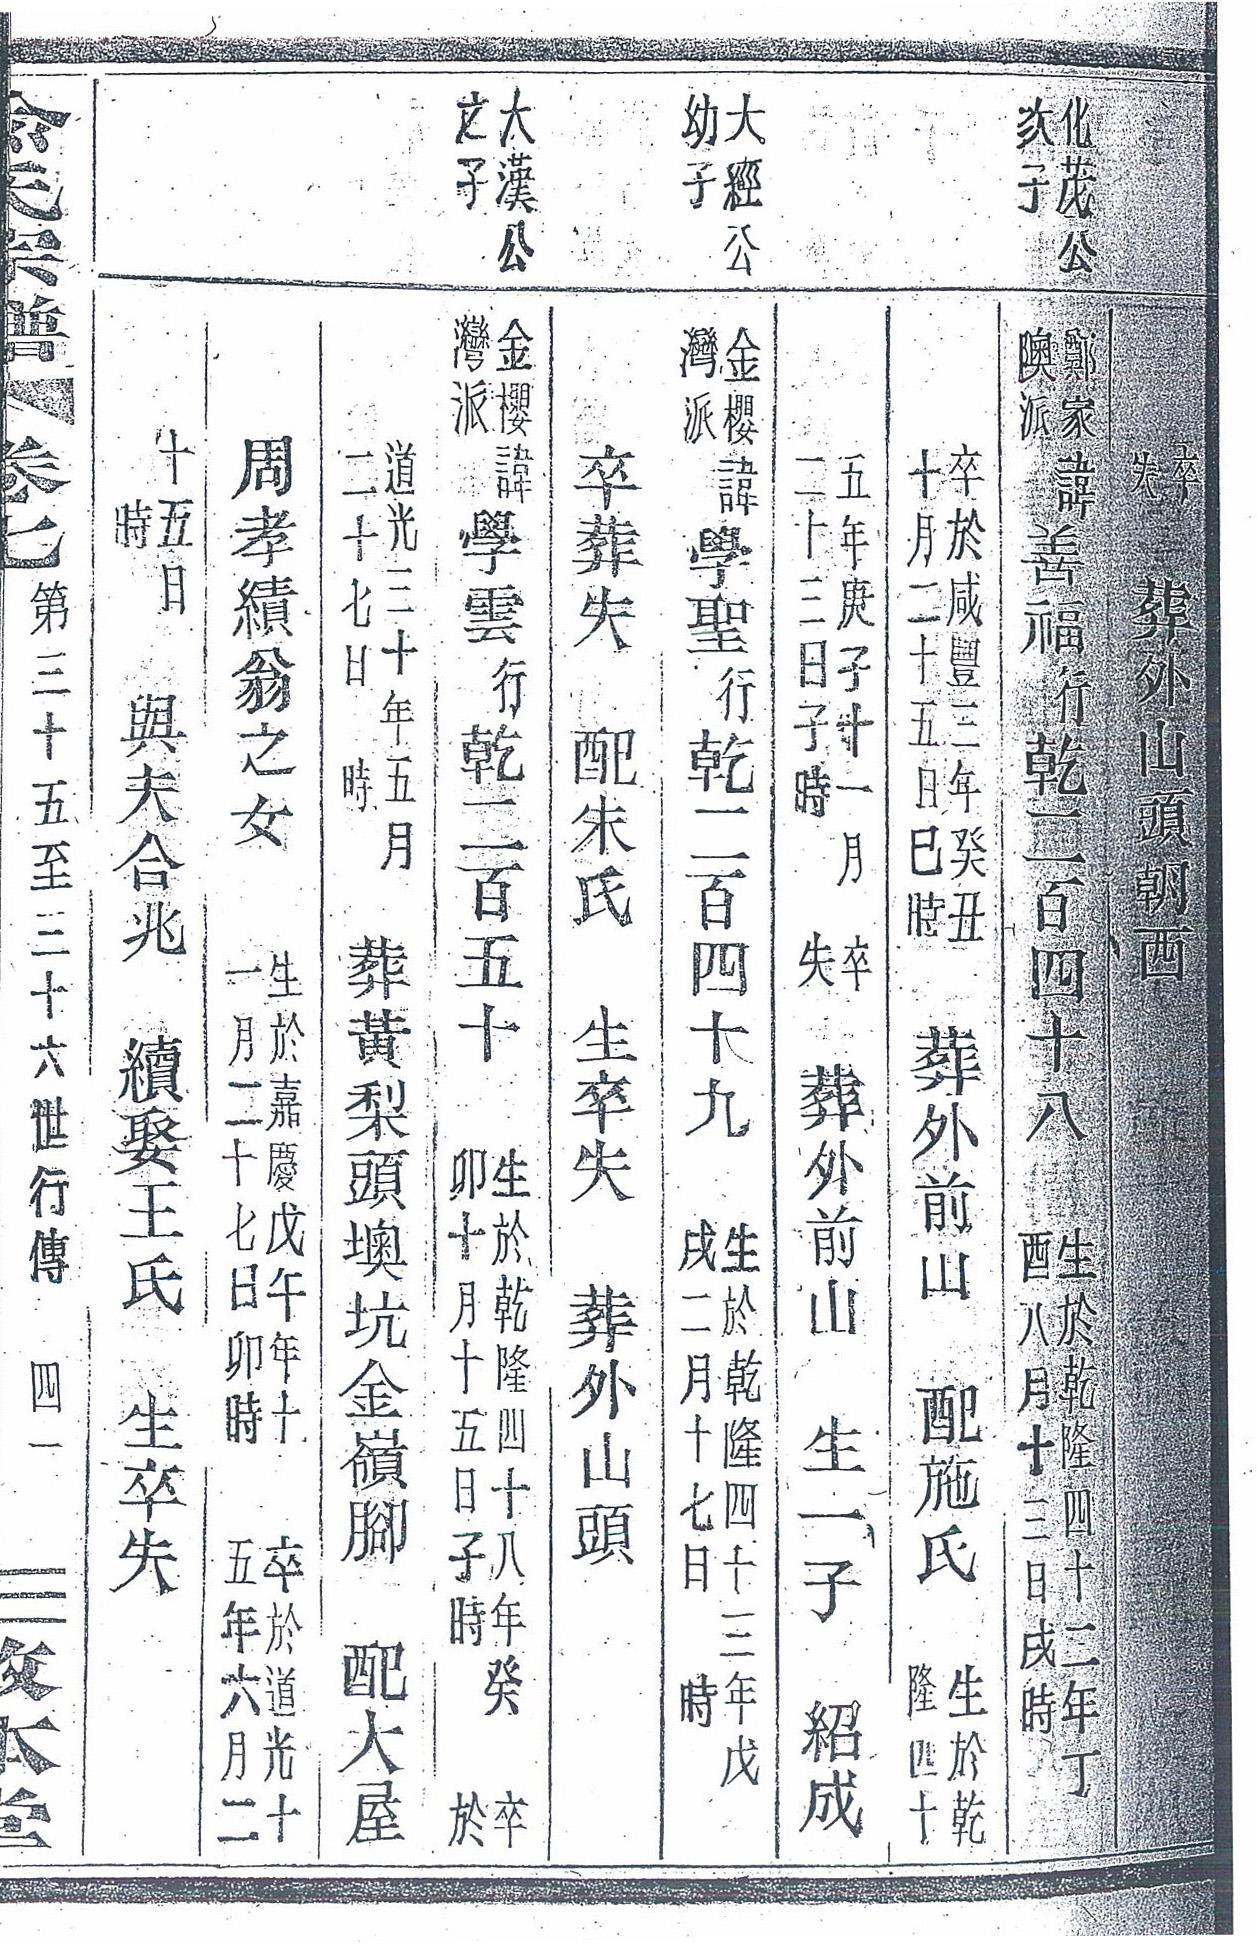 卒
失
葬外山頭朝西
化茂公
次子
鄭家
隩派
諱善福行乾二百四十八
生於乾隆四十二年丁
酉八月十三日戌時
卒於咸豐三年癸丑
十月二十五日巳時
葬外前山 配施氏
生於乾
隆四十
五年庚子十一月
二十三日子時
卒
失
葬外前山 生一子 紹成
大經公
幼子
金櫻
灣派
諱學聖行乾二百四十九
生於乾隆四十三年戊
戌二月十七日 時
卒葬失 配朱氏 生卒失 葬外山頭
大漢公
之子
金櫻
灣派
諱學雲行乾二百五十
生於乾隆四十八年癸
卯十月十五日子時
卒
於
道光三十年五月
二十七日 時
葬黃梨頭墺坑金嶺腳 配大屋
周孝績翁之女
生於嘉慶戊午年十
一月二十七日卯時
卒於道光十
五年六月二
十五日
時
與夫合兆 續娶王氏 生卒失
氏宗譜 卷七 第三十五至三十六世行傳 四一 本堂